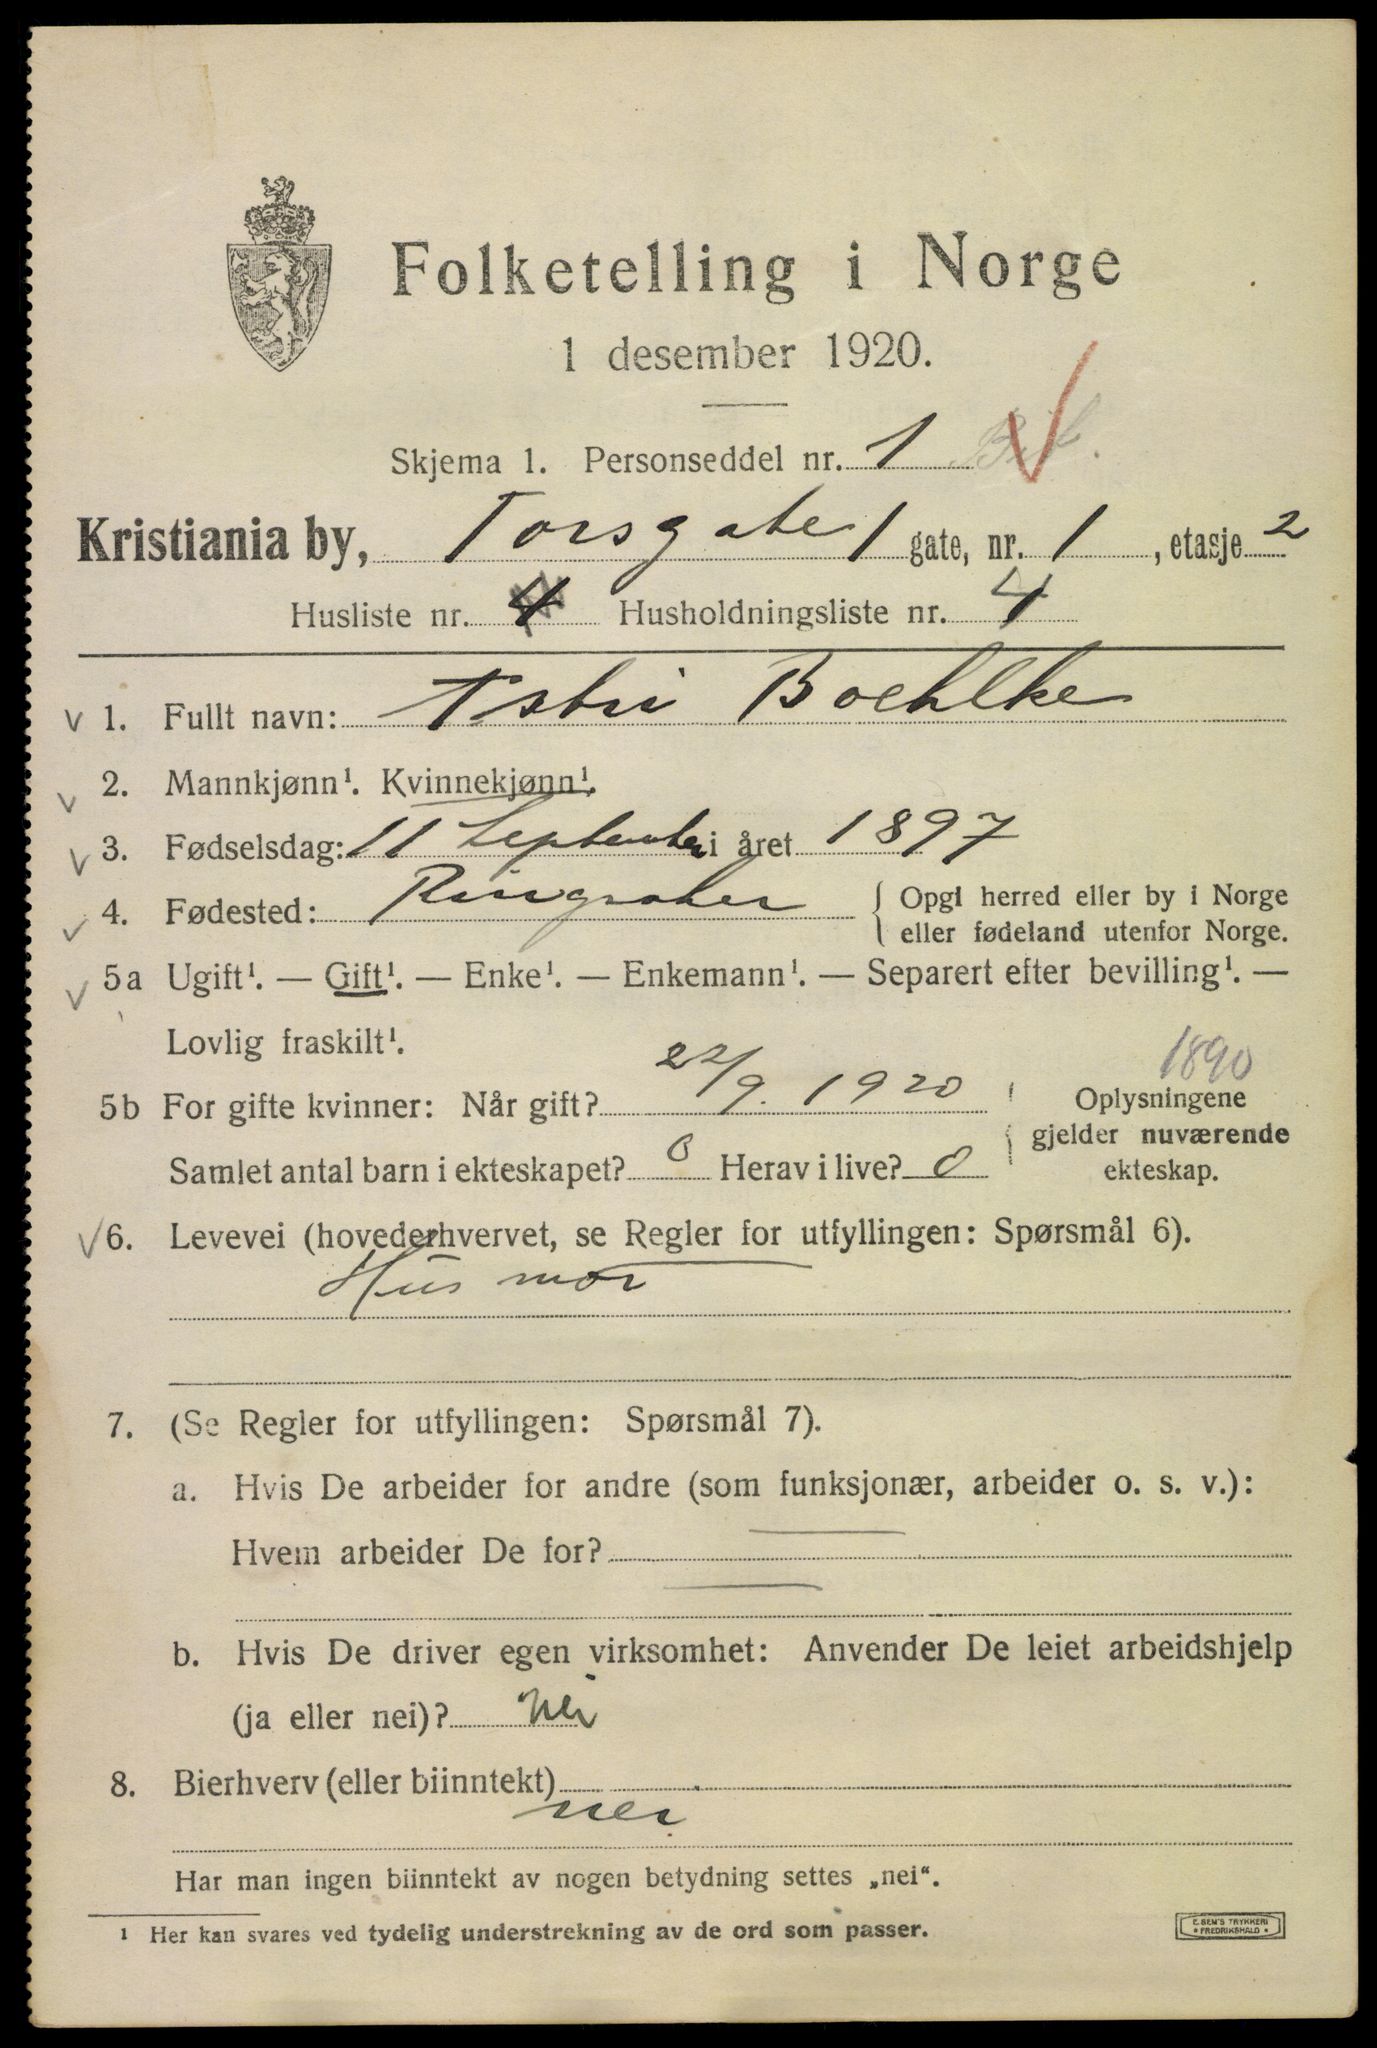 Folketelling i Norge
1 desember 1920.
Skjema 1. Personseddel nr. 1
Kristiania by, Torsgate 1 gate, nr. 1, etasje 2
Husliste nr. 4 Husholdningsliste nr. 4
1. Fullt navn: Astri Boehlke
2. Mannkjønn¹. Kvinnekjønn¹.
3. Fødselsdag: 11 September i året 1897
4. Fødested: Ringsaker { Opgi herred eller by i Norge
eller fødeland utenfor Norge.
5a Ugift¹. — Gift¹. — Enke¹. — Enkemann¹. — Separert efter bevilling¹. —
Lovlig fraskilt¹.
1890
5b For gifte kvinner: Når gift? 22/9. 1920 Oplysningene
gjelder nuværende
Samlet antal barn i ekteskapet? 0 Herav i live? 0 ekteskap.
6. Levevei (hovederhvervet, se Regler for utfyllingen: Spørsmål 6).
Hus mor
7. (Se Regler for utfyllingen: Spørsmål 7).
a. Hvis De arbeider for andre (som funksjonær, arbeider o. s. v.):
Hvem arbeider De for?
b. Hvis De driver egen virksomhet: Anvender De leiet arbeidshjelp
(ja eller nei)? Nei
8. Bierhverv (eller biinntekt)
nei
Har man ingen biinntekt av nogen betydning settes „nei“.
¹ Her kan svares ved tydelig understrekning av de ord som passer.
E. SEM'S TRYKKERI
* FREDRIKSHALD *